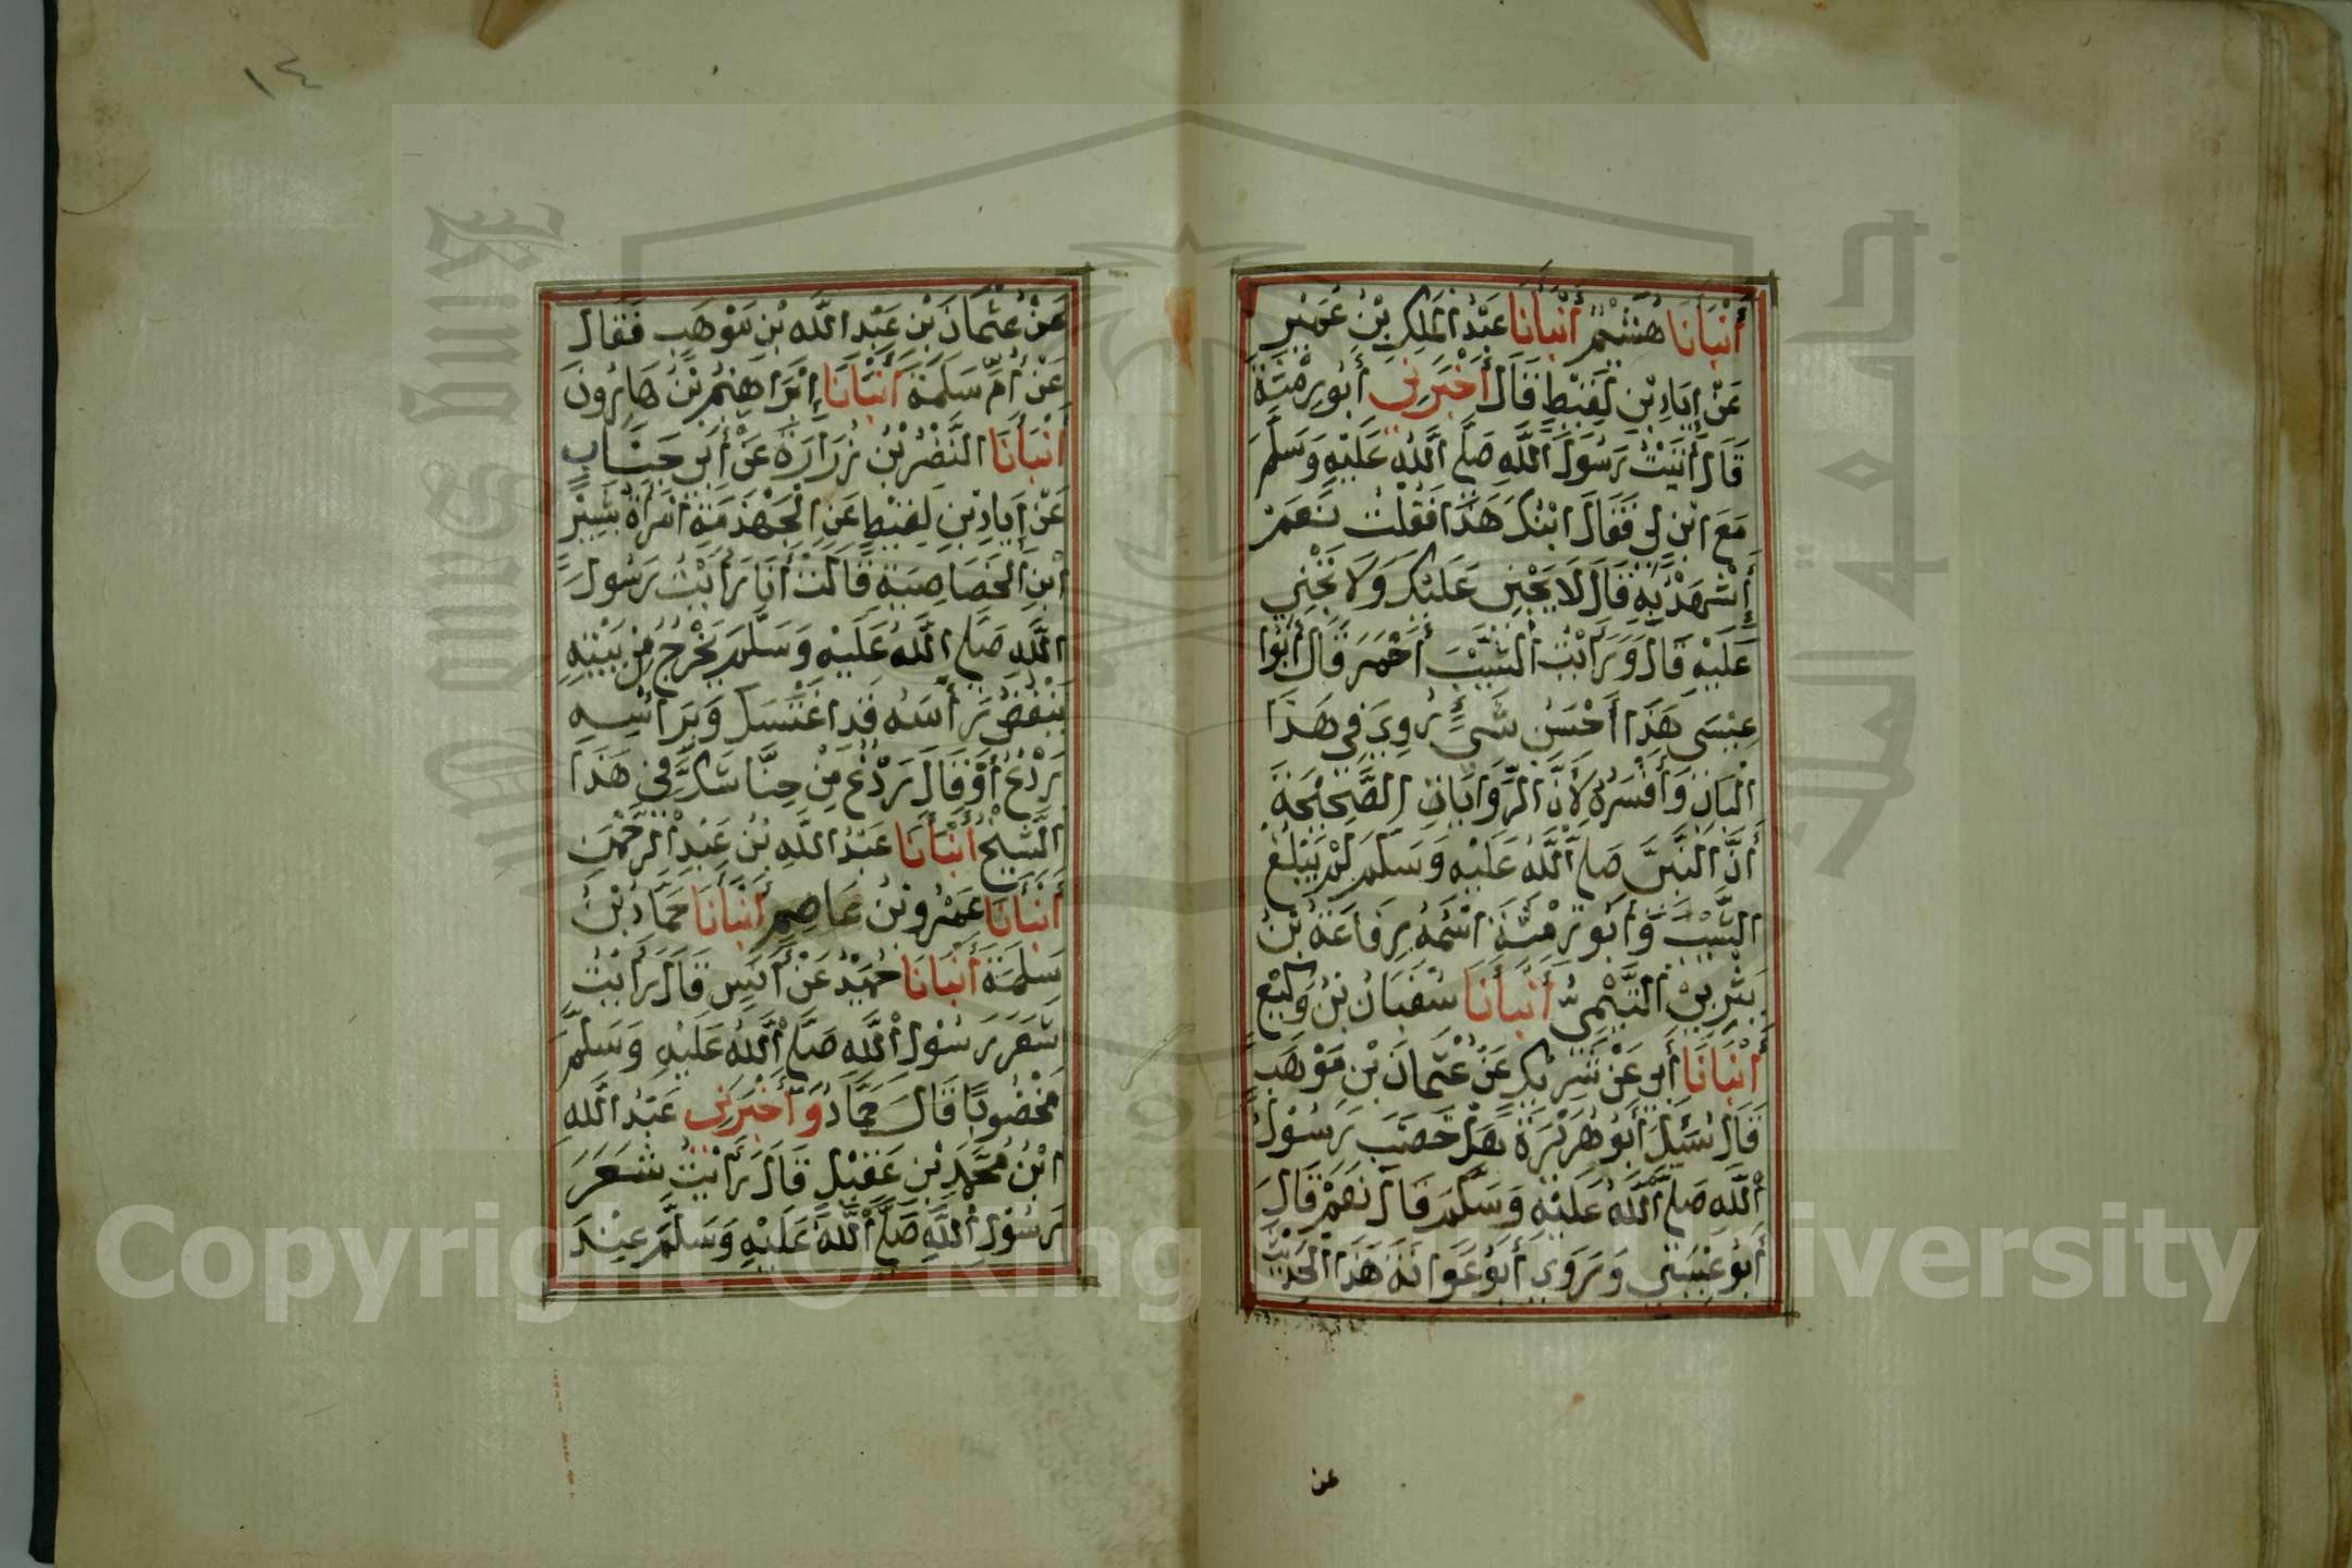 أَنْبَأَنَا هُشَيْمٌ أَنْبَأَنَا عَبْدُ الْمَلِكِ بْنُ عُمَيْرٍ
عَنْ إِيَادِ بْنِ لَقِيْطٍ قَالَ أَخْبَرَنِي أَبُو رِمْثَةَ
قَالَ أَتَيْتُ رَسُولَ اللَّهِ صَلَّى اللَّهُ عَلَيْهِ وَسَلَّمَ
مَعَ ابْنٍ لِي فَقَالَ ابْنُكَ هَذَا فَقُلْتُ نَعَمْ
أَشْهَدْ بِهِ قَالَ لَا يَجْنِي عَلَيْكَ وَلَا تَجْنِي
عَلَيْهِ قَالَ وَرَأَيْتُ الشَّيْبَ أَحْمَرَ قَالَ أَبُوا
عِيْسَى هَذَا أَحْسَنُ شَيْءٍ رُوِيَ فِي هَذَا
الْبَابِ وَأَفْسَرُهُ لِأَنَّ الرِّوَايَاتِ الصَّحِيْحَةَ
أَنَّ النَّبِيَّ صَلَّى اللَّهُ عَلَيْهِ وَسَلَّمَ لَمْ يَبْلُغِ
الشَّيْبَ وَأَبُو رِمْثَةَ اسْمُهُ رِفَاعَةُ بْنُ
يَثْرِبِيْ التَّيْمِيُّ أَنْبَأَنَا سُفْيَانُ بْنُ وَكِيْعٍ
أَنْبَأَنَا أَبِي عَنْ شَرِيْكٍ عَنْ عُثْمَانَ بْنِ مَوْهَبٍ
قَالَ سُئِلَ أَبُو هُرَيْرَةَ هَلْ خَضَبَ رَسُوْلُ
اللَّهِ صَلَّى اللَّهُ عَلَيْهِ وَسَلَّمَ قَالَ نَعَمْ قَالَ
أَبُو عِيْسَى وَرَوَى أَبُو عَوَانَةَ هَذَا الْحَدِيْثَ
عن
١٤
عَنْ عُثْمَانَ بْنِ عَبْدِ اللَّهِ بْنِ مَوْهَبٍ فَقَالَ
عَنْ أُمِّ سَلَمَةَ أَنْبَأَنَا إِبْرَاهِيْمُ بْنُ هَارُونَ
أَنْبَأَنَا النَّضْرُ بْنُ زُرَارَةَ عَنْ أَبِي جَنَابٍ
عَنْ إِيَادِ بْنِ لَقِيْطٍ عَنِ الْجَهْذَمَةِ امْرَأَةِ بَشِيْرِ
ابْنِ الْخَصَاصِيَةِ قَالَتْ أَنَا رَأَيْتُ رَسُولَ
اللَّهِ صَلَّى اللَّهُ عَلَيْهِ وَسَلَّمَ يَخْرُجُ مِنْ بَيْتِهِ
يَنْفُضُ رَأْسَهُ قَدِ اغْتَسَلَ وَبِرَأْسِهِ
رَدْعٌ أَوْ قَالَ رَدْغٌ مِنْ حِنَّا شَكَّ فِي هَذَا
الشَّيْخُ أَنْبَأَنَا عَبْدُ اللَّهِ بْنُ عَبْدِ الرَّحْمَنِ
أَنْبَأَنَا عَمْرُو بْنُ عَاصِمٍ أَنْبَأَنَا حَمَّادُ بْنُ
سَلَمَةَ أَنْبَأَنَا حُمَيْدٌ عَنْ أَنَسٍ قَالَ رَأَيْتُ
شَعَرَ رَسُوْلِ اللَّهِ صَلَّى اللَّهُ عَلَيْهِ وَسَلَّمَ
مَخْضُوبًا قَالَ حَمَّادُ وَأَخْبَرَنِي عَبْدُ اللَّهِ
ابْنُ مُحَمَّدِ بْنِ عَقِيْلٍ قَالَ رَأَيْتُ شَعَرَ
رَسُوْلِ اللَّهِ صَلَّى اللَّهُ عَلَيْهِ وَسَلَّمَ عِنْدَ
Copyright © King University